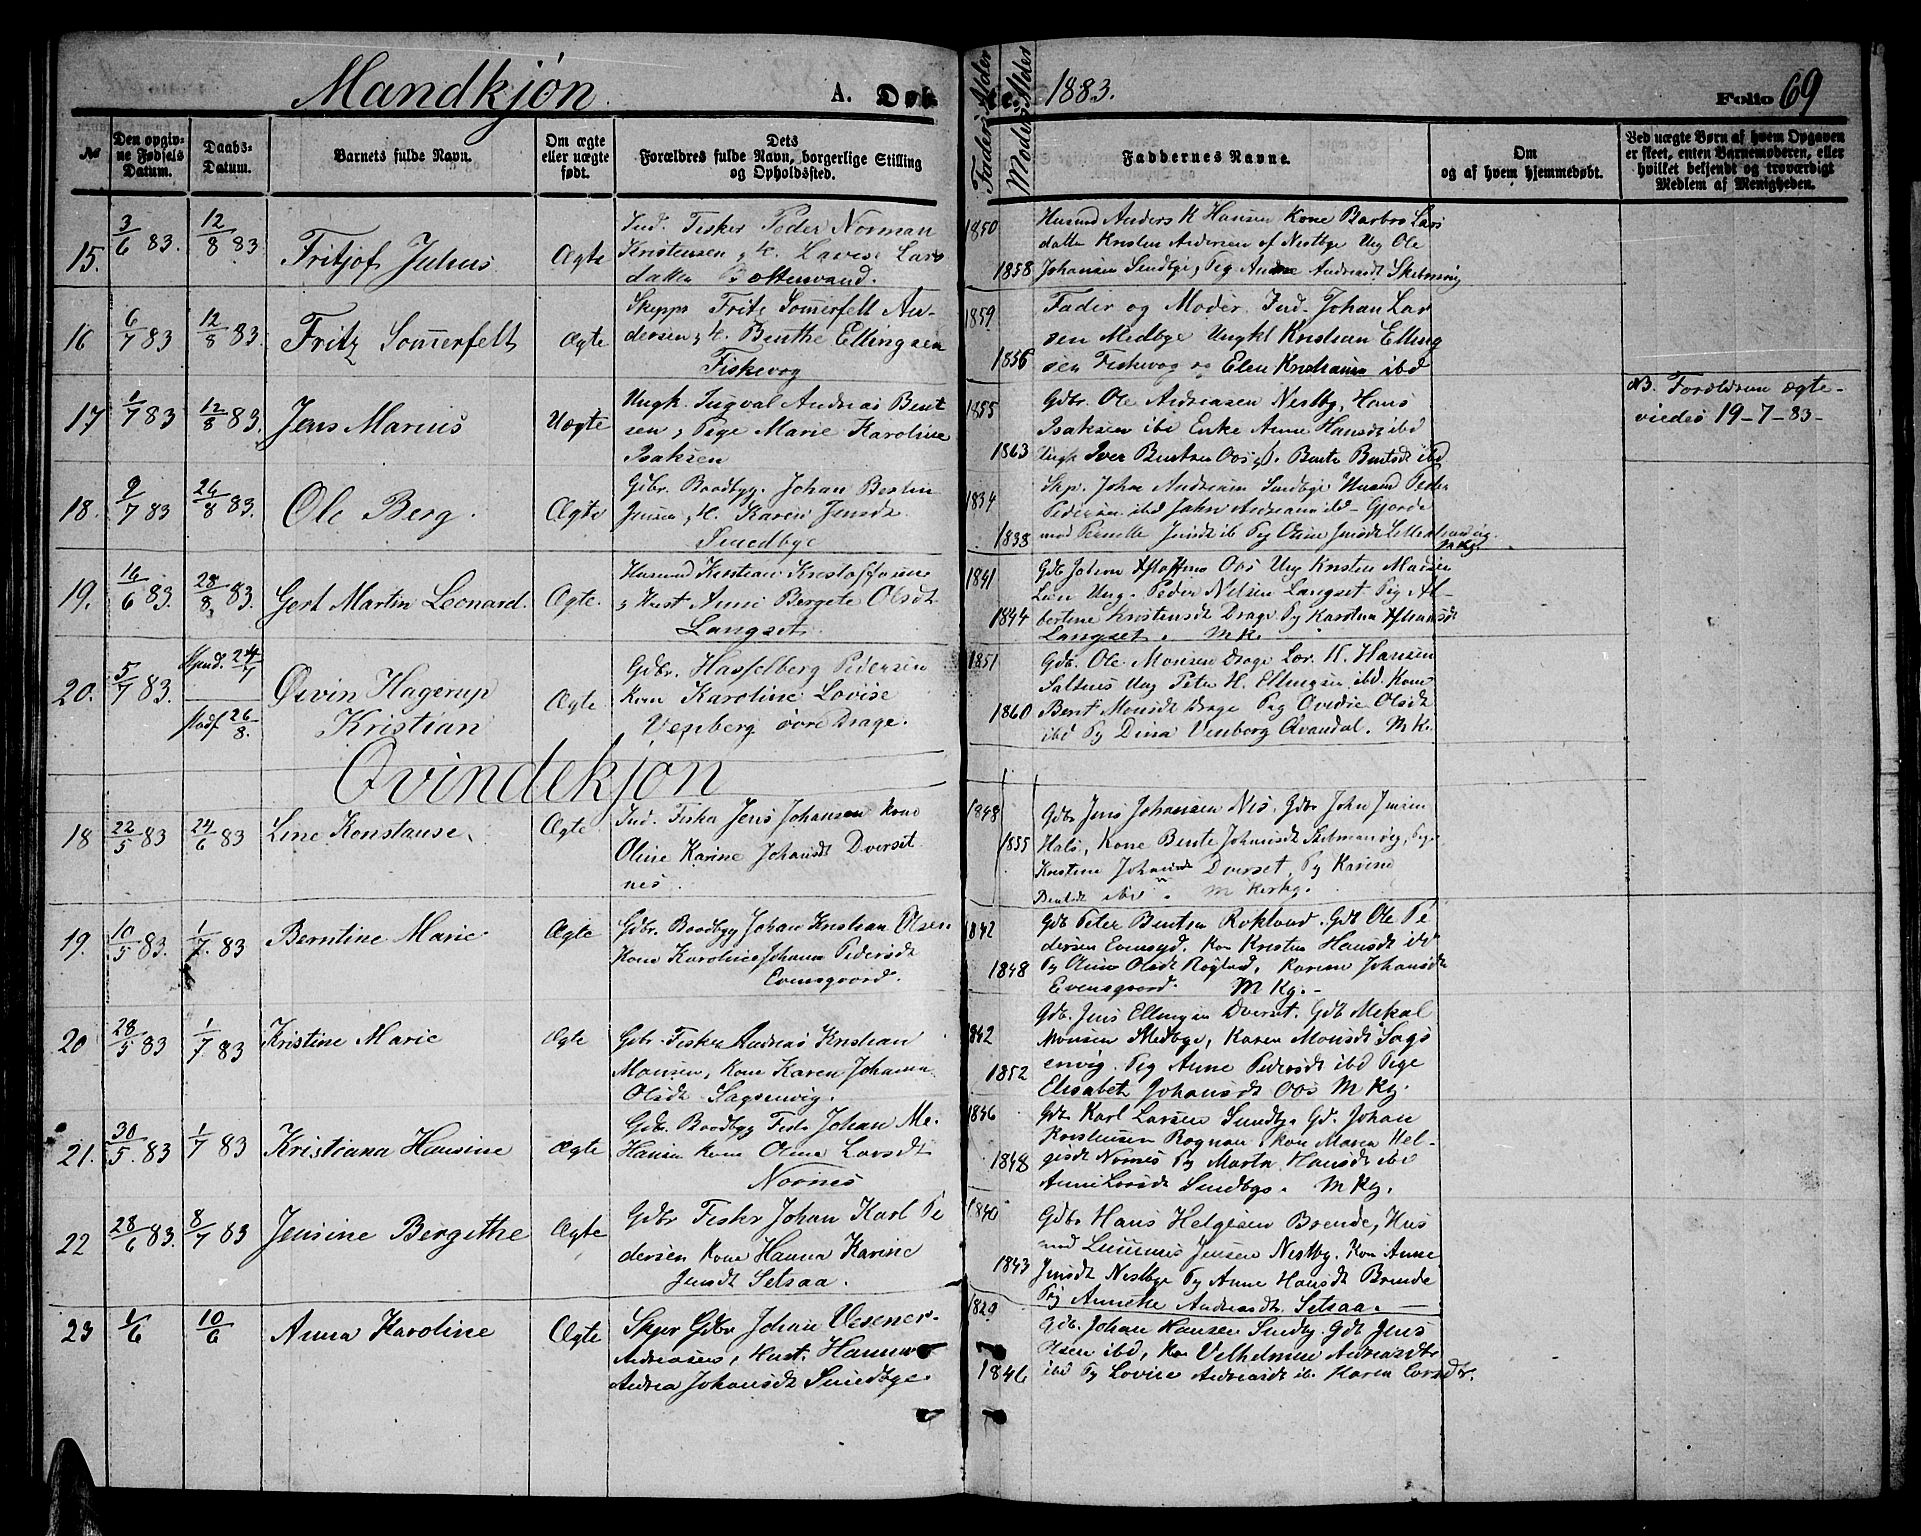 Mandkjøn. A. Døbte. 1883. Folio 69
№
Den opgivne Fødsels Datum.
Daabs-Datum.
Barnets fulde Navn.
Om ægte eller uægte født.
Dets Forældres fulde Navn, borgerlige Stilling og Opholdssted.
Faders Alder
Moders Alder
Faddernes Navne.
Om og af hvem hjemmedøbt.
Ved uægte Børn af hvem Opgaven er skeet, enten Barnemoderen, eller hvilket bekjendt og troværdigt Medlem af Menigheden.
15. 3/6 83. 12/8 83. Fritjof Julius Ægte
Ind. Fisker Peder Norman
Kristensen, k. Lovise Lars
datter Bottenvand.
1850
1858
Husmd Anders K Hansen Kone Barbro Lars
datter Kristen Andersen af Nestbye Ung Ole
Johansen Sundbye, Pig Andrea Andreasdt
16 6/7 83 12/8 83. Fritz Sommerfelt Ægte
Skipps Fritz Sommerfelt An-
dersen, k. Benthe Ellingsen
Fiskevog
1859
1856
Fader og Moder. Ind. Johan Lar
sen Medbye Ungkl Kristian Elling
sen Fiskevog og Elen ibd
17 1/7 83 12/8 83. Jens Marius Uægte
Ungk. Ingval Andreas Bent
sen, Pige Marie Karoline
Isaksen
1855
1863
Gdbr. Ole Andreasen Nestby, Hans
Isaksen ibd Enke Anne Hansdt ibd
Ungk Iver Bentsen Oos, P. Bente Bentsdt ibd
NB. Forældrene ægte-
viedes 19-7-83-
18. 9/7 83 26/8 83. Ole Berg. Ægte
Gdbr. Baadbyg. Johan
Jensen, k. Karen Jensdt.
Smedbye
1834
1838
Skp. Johan Andreasen Sundbye Husmd Peder
Pedersen ibd John Andreasen ibd
med Pernille Jensdt ib Pg Oline Jensdt
19. 16/6 83. 28/8 83. Gert Martin Leonard. Ægte.
Husmd Kristian Kristoffersen
, Hust Anne Bergete Olsdt
Langset.
1841
1844
Gdb Johan Oos Ung Kristen Madsen
Ung. Peder Nilsen Langset Pig Al-
bertine Kristensdt Drage Pg Karolina
Langset. M K.
20. 5/7 83. 24/7 26/8. Osvin Hagerup
Kristian Ægte
Gdbr. Hasselberg Pedersen
kone Karoline Lovise
Venberg övre Drage.
1851
1860
Gdb. Ole Monsen Drage Lor. K. Hansen
Saltnes Ung Peter H. Ellingsen ibd. Kone
Berit Monsdt Drage Pig Ovedie Olsdt
ibd Pg Dina Venberg Qvandal. M K.
Qvindekjøn
18 22/5 83 24/6 83 Line Konstanse. Ægte
Ind. Fisker Jens Johansen kone
Oline Karine Johansdt Dverset
nes.
1848
1855
Gdbr Jens Johansen Nes. Gdbr John Jensen
Hals, Kone Bente Johansdt
Kristine Johansdt Dverset, Pg Karine
Bentsdt ibd. M Kirkeg.
19. 10/5 83. 1/7. 83 Berntine Marie Ægte
Gdbr. Baadbyg Johan Kristian Olsen
Kone Karoline Johana Pedersdt
Evensgaard.
1842
1848
Gdb Peter Bentsen Rokland. Gdb Ole Pe
dersen Kon Kristine Hansdt ibd
Pg Oline Olsdt Rogland. Karen Johansdt
Evensgaard. M Kg.-
20 28/5 83 1/7 83 Kristine Marie Ægte
Gdbr. Fisker Andreas Kristian
Monsen, Kone Karen Johana
Olsdt Sagsenvig.
1842
1852
Gdb. Jens Ellingsen Dverset. Gdb Mekal
Monsen Medbye, Karen Monsdt Sags
envig. Pig Anne Pedersdt ibd Pige
Elisabet Johansdt Oos M Kg.
21. 30/5. 83 1/7 83 Kristiana Hansine Ægte
Gdbr. Baadbyg Fisk Johan Me.
Hansen kone Oline Larsdt
Nornes
1846
1848
Gdb Karl Larsen Sundby. Gd. Johan
Karstensen Rognan. Kon Maren Hel-
gesdt Nornes Pg Marta Hansdt ibd
Anne Larsdt Sundbye. M Kg.
22 28/6 83. 8/7 83 Jensine Bergithe Ægte
Gdbr Fisker Johan Karl Pe
dersen Kone Hanna Karine
Jensdt Setsaa.
1840
1843
Gdbr Hans Helgesen Brende, Hus
mnd Jensen Nestby. Kon Anne
Jensdt Nestbye Pg Anne Hansdt Brende
Pig Annette Andreasdt. Setsaa.
23 1/6 10/6 Anna Karoline Ægte
Skpr Gdbr Johan Vesener-
Andreasen, Hust. Hanna
Andrea Johansdt Smedbye.
1829
1846
Gdb. Johan Hansen Sundby. Gdb Jens
Olsen ibd, Kon Velhelmine Andreasdtr
ibd Pg Lovise Andreasdt ib. Karen Larsdtr.